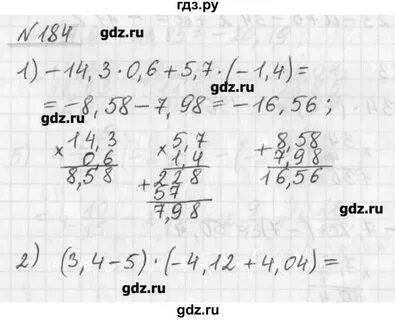 гдз.ру
№184
gdz.ru
gdz.ru
1) -14,3·0,6+5,7·(-1,4)=
= -8,58-7,98= -16,56;
gdz.ru
× 14,3
0,6
8,58
× 5,7
1,4
+ 228
57
7,98
+ 8,58
7,98
16,56
gdz.ru
gdz.ru
gdz.ru
2) (3,4-5)·(-4,12+4,04)=
gdz.ru
gdz.ru